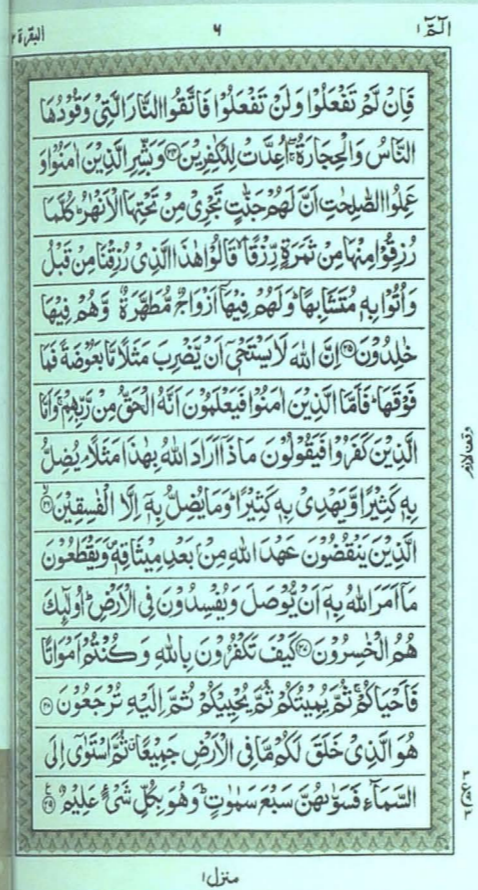 الٓمّٓ ١
٦
البقرة ٢
فَاِنْ لَّمْ تَفْعَلُوْا وَلَنْ تَفْعَلُوْا فَاتَّقُوا النَّارَ الَّتِیْ وَقُوْدُهَا
النَّاسُ وَالْحِجَارَةُ ۖۚ اُعِدَّتْ لِلْكٰفِرِیْنَ ﴿۲۴﴾ وَبَشِّرِ الَّذِیْنَ اٰمَنُوْا وَ
عَمِلُوا الصّٰلِحٰتِ اَنَّ لَهُمْ جَنّٰتٍ تَجْرِیْ مِنْ تَحْتِهَا الْاَنْهٰرُ ؕ كُلَّمَا
رُزِقُوْا مِنْهَا مِنْ ثَمَرَةٍ رِّزْقًا ۙ قَالُوْا هٰذَا الَّذِیْ رُزِقْنَا مِنْ قَبْلُ
وَاُتُوْا بِهٖ مُتَشَابِهًا ؕ وَلَهُمْ فِیْهَاۤ اَزْوَاجٌ مُّطَهَّرَةٌ ۙ وَّهُمْ فِیْهَا
خٰلِدُوْنَ ﴿۲۵﴾ اِنَّ اللّٰهَ لَا یَسْتَحْیٖۤ اَنْ یَّضْرِبَ مَثَلًا مَّا بَعُوْضَةً فَمَا
فَوْقَهَا ؕ فَاَمَّا الَّذِیْنَ اٰمَنُوْا فَیَعْلَمُوْنَ اَنَّهُ الْحَقُّ مِنْ رَّبِّهِمْ ۚ وَاَمَّا
الَّذِیْنَ كَفَرُوْا فَیَقُوْلُوْنَ مَاذَاۤ اَرَادَ اللّٰهُ بِهٰذَا مَثَلًا ۘ یُضِلُّ
بِهٖ كَثِیْرًا وَّیَهْدِیْ بِهٖ كَثِیْرًا ؕ وَمَا یُضِلُّ بِهٖۤ اِلَّا الْفٰسِقِیْنَ ﴿۲۶﴾ ۙ
الَّذِیْنَ یَنْقُضُوْنَ عَهْدَ اللّٰهِ مِنْۢ بَعْدِ مِیْثَاقِهٖ ۪ وَیَقْطَعُوْنَ
مَاۤ اَمَرَ اللّٰهُ بِهٖۤ اَنْ یُّوْصَلَ وَیُفْسِدُوْنَ فِی الْاَرْضِ ؕ اُولٰٓىِٕكَ
هُمُ الْخٰسِرُوْنَ ﴿۲۷﴾ كَیْفَ تَكْفُرُوْنَ بِاللّٰهِ وَكُنْتُمْ اَمْوَاتًا
فَاَحْیَاكُمْ ۚ ثُمَّ یُمِیْتُكُمْ ثُمَّ یُحْیِیْكُمْ ثُمَّ اِلَیْهِ تُرْجَعُوْنَ ﴿۲۸﴾
هُوَ الَّذِیْ خَلَقَ لَكُمْ مَّا فِی الْاَرْضِ جَمِیْعًا ۗ ثُمَّ اسْتَوٰۤی اِلَی
السَّمَآءِ فَسَوّٰىهُنَّ سَبْعَ سَمٰوٰتٍ ؕ وَهُوَ بِكُلِّ شَیْءٍ عَلِیْمٌ ﴿۲۹﴾
وقف لازم
منزل ١